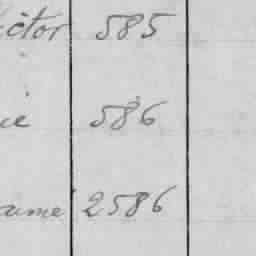 ictor 585
ue 586
aume 2586